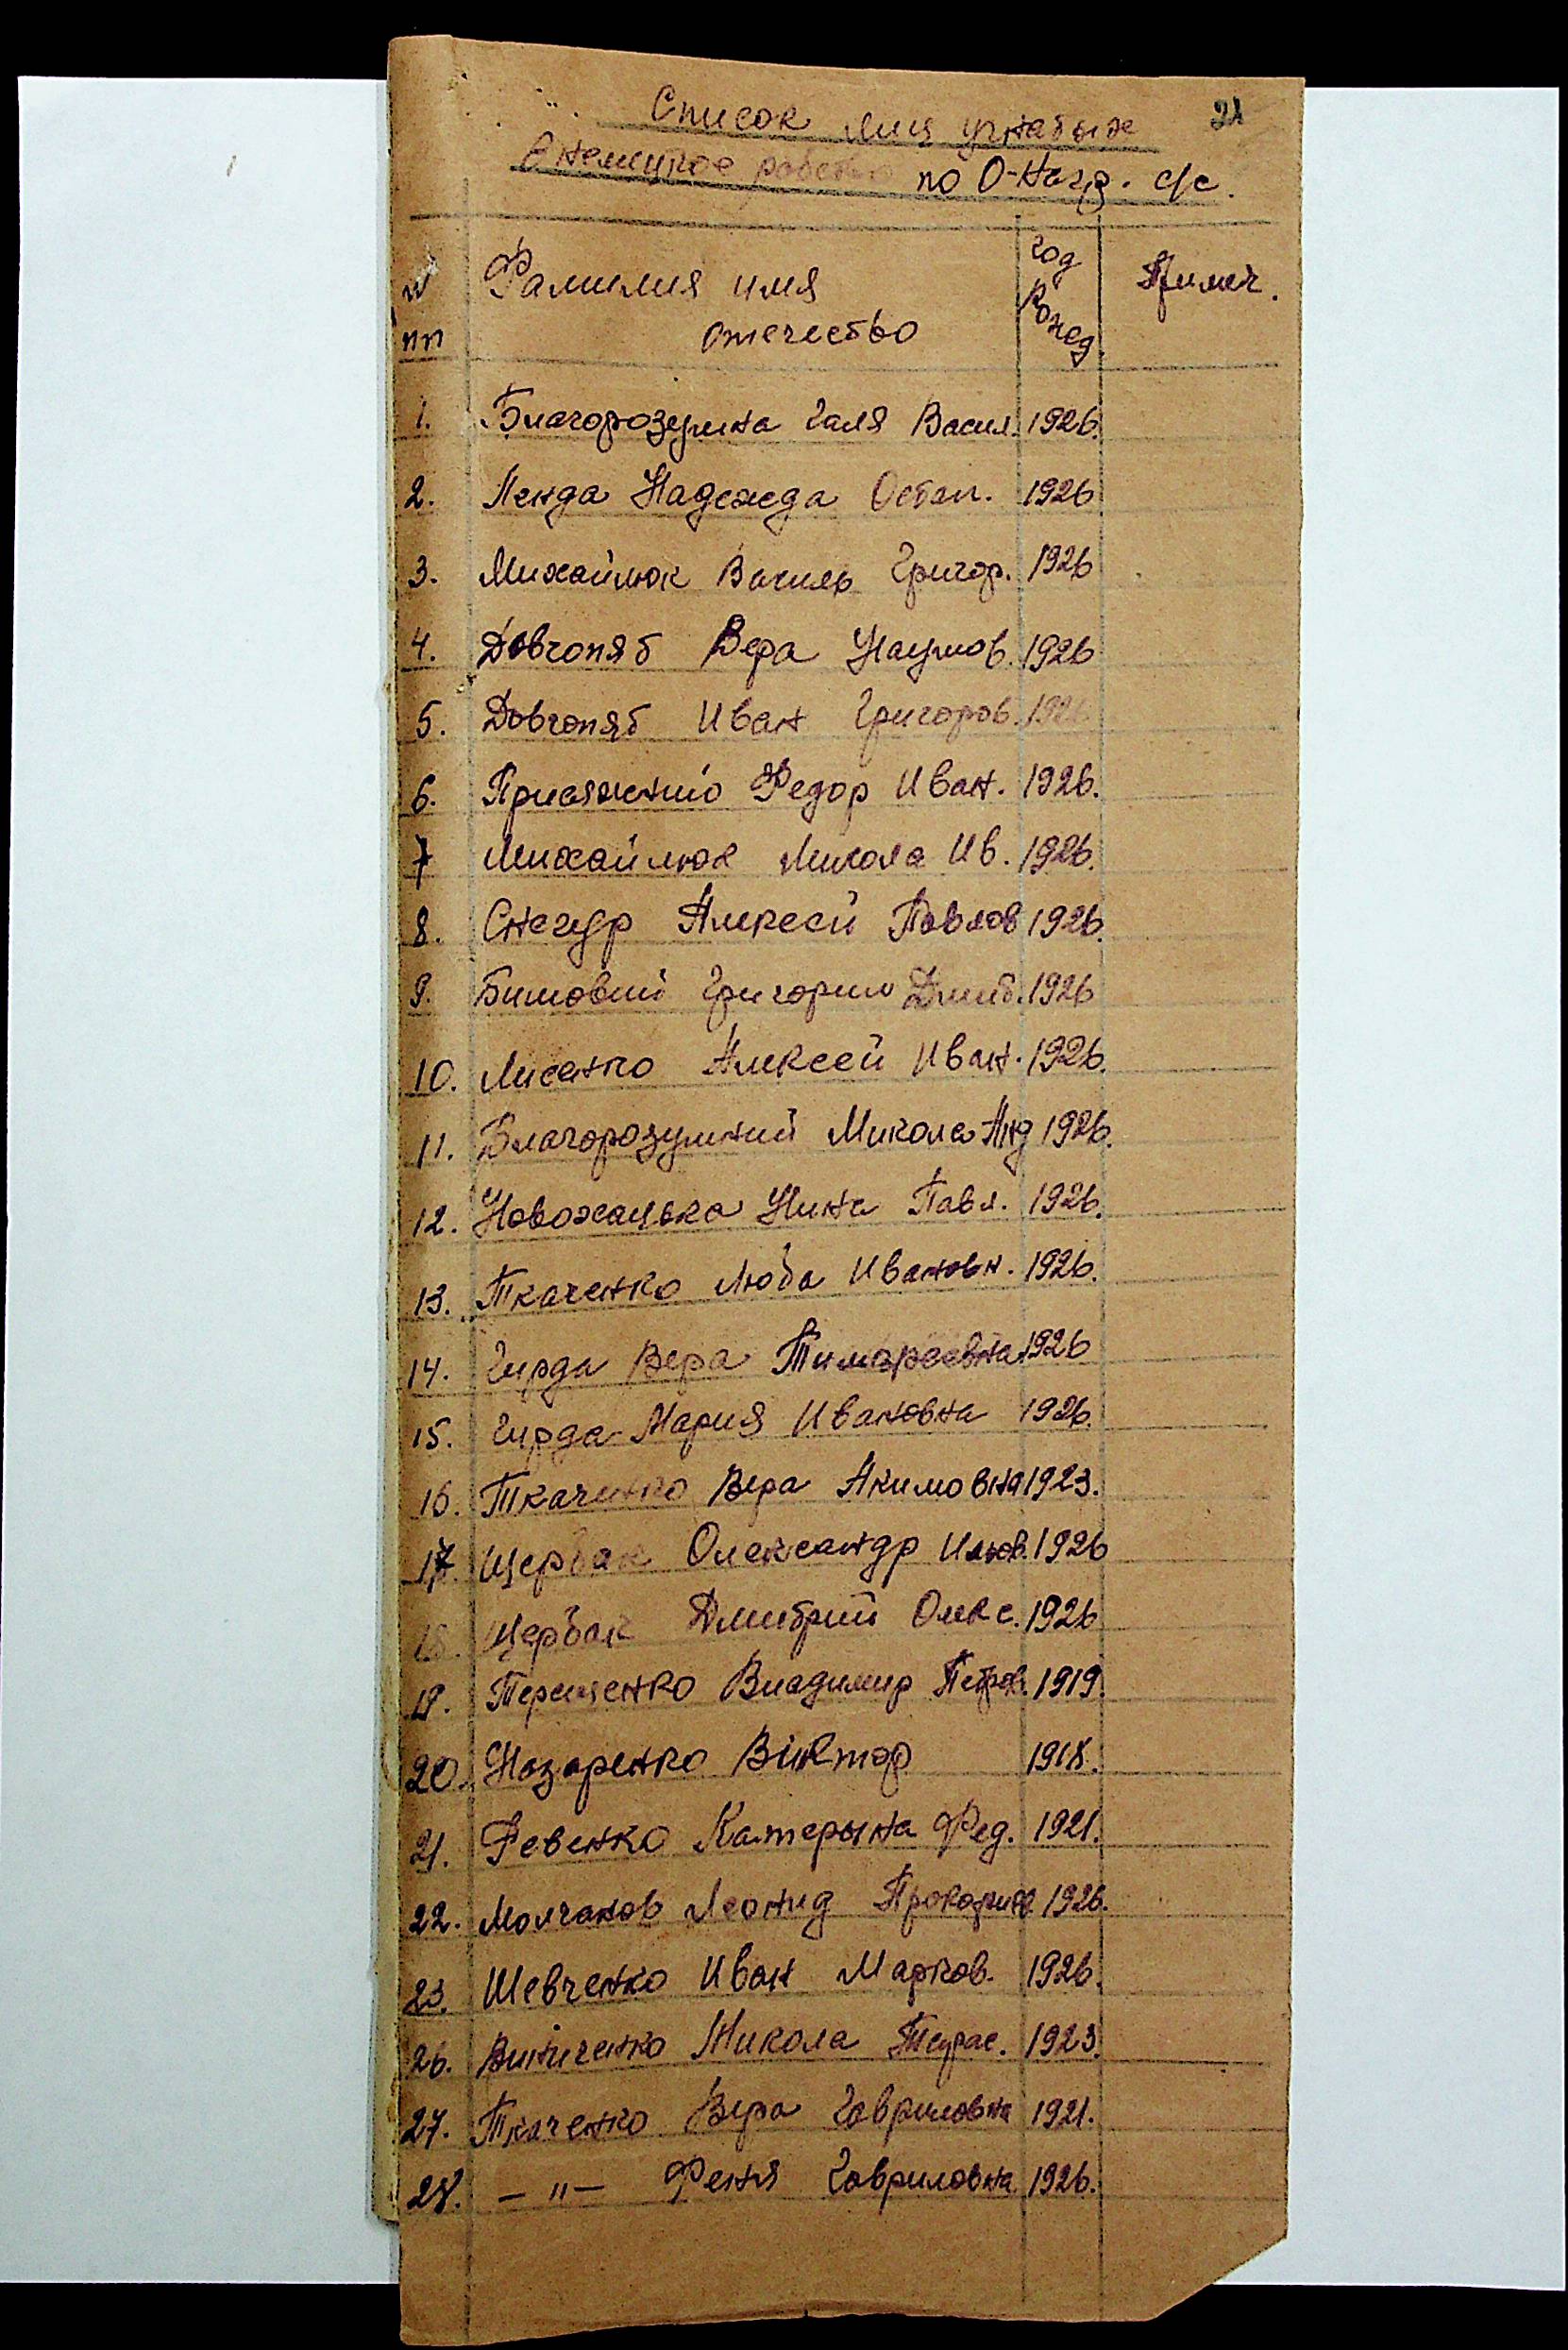 21
Список лиц угнатых
в немецкое рабство по О-Назд. с/с.
№ Фамилия имя Год Примеч.
пп отчество Рожд.
1. Благорозумна Галя Васил. 1926.
2. Ленда Надежда Остап. 1926
3. Михайлюк Василь Григор. 1926
4. Довгопят Вера Наумов. 1926
5. Довгопят Иван Григоров. 1926
6. Присяжнию Федор Иван. 1926.
7 Михайлюк Микола Ив. 1926.
8. Снегур Алексей Павлов 1926.
9. Григории Дмит. 1926
10. Лисенко Алексей Иван. 1926.
11. Благорозумний Микола Анд 1926.
12. Новохацька Нина Павл. 1926.
13. Ткаченко Люба Ивановн. 1926.
14. Гирда Вера 1926
15. Гирда Мария Ивановна 1926.
16. Ткаченко Вера Акимовна 1923.
17. Щербак Олександр Ильов. 1926
18. Щербак Дмитрий Олекс. 1926
19. Терещенко Владимир Петров. 1919.
20. Назаренко Віктор 1918.
21. Ревенко Катерына Фед. 1921.
22. Молчанов Леонид 1926.
23. Шевченко Иван Марков. 1926.
26. Виниченко Микола Тарас. 1923.
27. Ткаченко Вера Гавриловна 1921.
28. — " — Феня Гавриловна 1926.